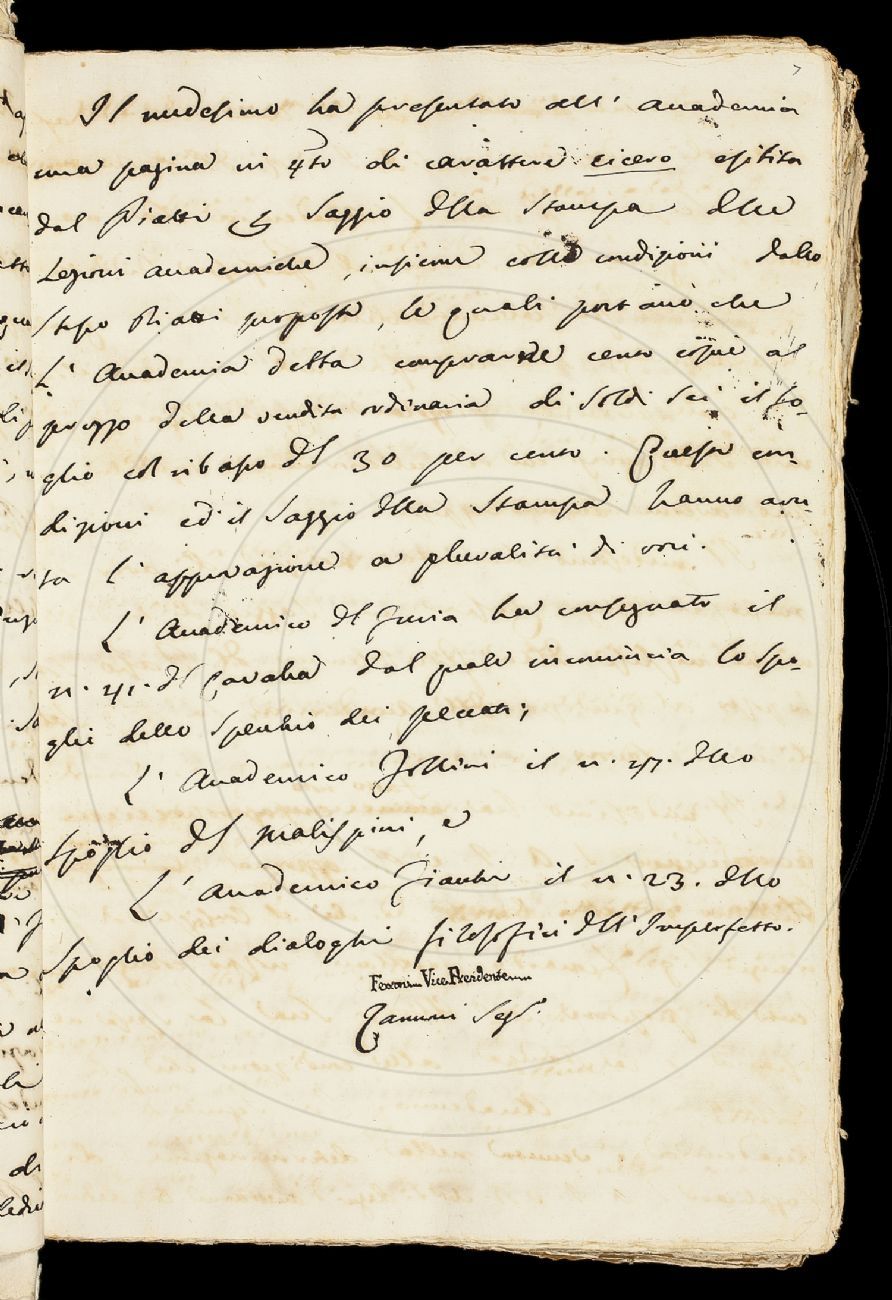 Il medesimo ha presentato all' Accademia
una pagina in 4to di carattere cicero esibita
dal Piatti p Saggio della Stampa delle
Lezioni accademiche, insieme colle condizioni dallo
Stesso Piatti proposte, le quali portano che
L' Accademia debba comprarne cento copie al
prezzo della vendita ordinaria di Soldi Sei il fo-
glio col ribasso del 30 per cento. Queste con-
dizioni ed il Saggio della Stampa hanno avu-
ta l' approvazione a pluralità di voti.
L' Accademico del Furia ha consegnato il
n. 41. del Cavalca dal quale incomincia lo Spo-
glio dello Specchio dei peccati;
L' Accademico Follini il n. 47. dello
Spoglio del Malispini, e
L' Accademico Fiacchi il n. 23. dello
Spoglio dei dialoghi filosofici dell' Imperfetto.
Ferroni Vice Presidente
Zannoni Seg.